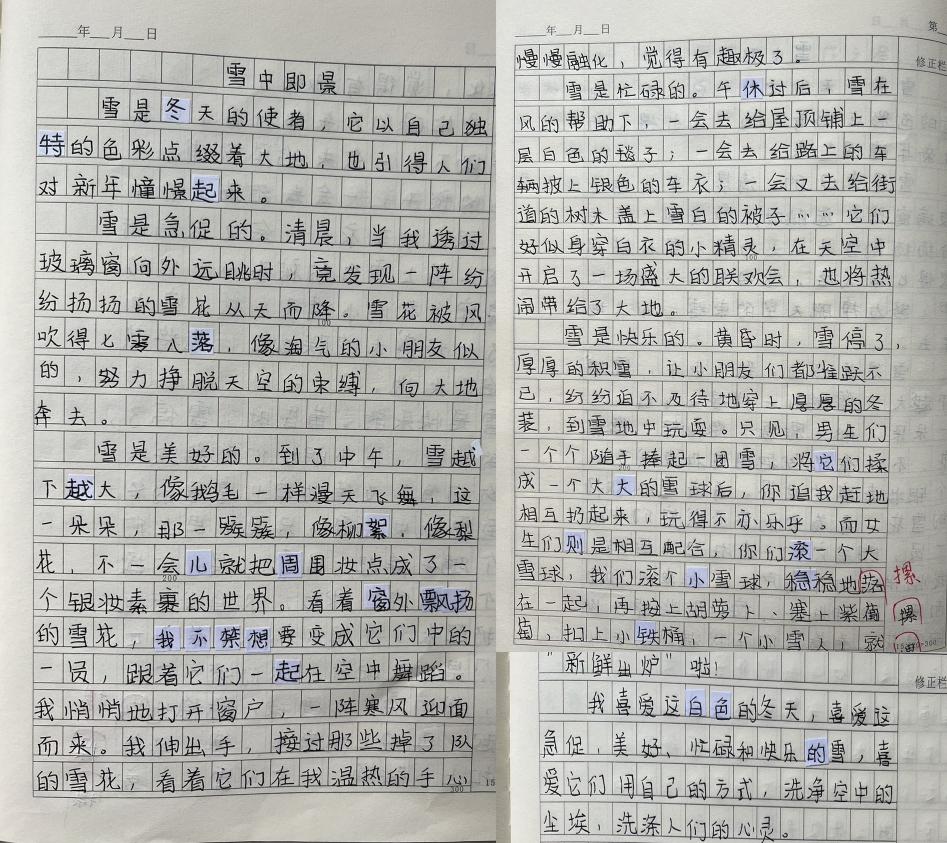 年 月 日
雪中即景
雪是冬天的使者，它以自己独
特的色彩点缀着大地，也引得人们
对新年憧憬起来。
雪是急促的。清晨，当我透过
玻璃窗向外远眺时，竟发现一阵纷
纷扬扬的雪花从天而降。雪花被风
100
吹得七零八落，像淘气的小朋友似
的，努力挣脱天空的束缚，向大地
奔去。
雪是美好的。到了中午，雪越
下越大，像鹅毛一样漫天飞舞，这
一朵朵，那一簇簇，像柳絮，像梨
花，不一会儿就把周围妆点成了一
200
个银妆素裹的世界。看着窗外飘扬
的雪花，我不禁想要变成它们中的
一员，跟着它们一起在空中舞蹈。
我悄悄地打开窗户，一阵寒风迎面
而来。我伸出手，接过那些掉了队
的雪花，看着它们在我温热的手心
300
年 月 日
第
修正栏
慢慢融化，觉得有趣极了。
雪是忙碌的。午休过后，雪在
风的帮助下，一会去给屋顶铺上一
层白色的毯子；一会去给路上的车
辆披上银色的车衣；一会又去给街
道的树木盖上雪白的被子……它们
好似身穿白衣的小精灵，在天空中
开启了一场盛大的联欢会，也将热
闹带给了大地。
雪是快乐的。黄昏时，雪停了，
厚厚的积雪，让小朋友们都雀跃不
已，纷纷迫不及待地穿上厚厚的冬
装，到雪地中玩耍。只见，男生们
一个个随手捧起一团雪，将它们揉
成一个大大的雪球后，你追我赶地
相互扔起来，玩得不亦乐乎。而女
生们则是相互配合，你们滚一个大
雪球，我们滚个小雪球，稳稳地落 摞
在一起，再按上胡萝卜、塞上紫葡
萄，扣上小铁桶，一个小雪人，就
"新鲜出炉"啦！
修正栏
我喜爱这白色的冬天，喜爱这
急促、美好、忙碌和快乐的雪，喜
爱它们用自己的方式，洗净空中的
尘埃，洗涤人们的心灵。